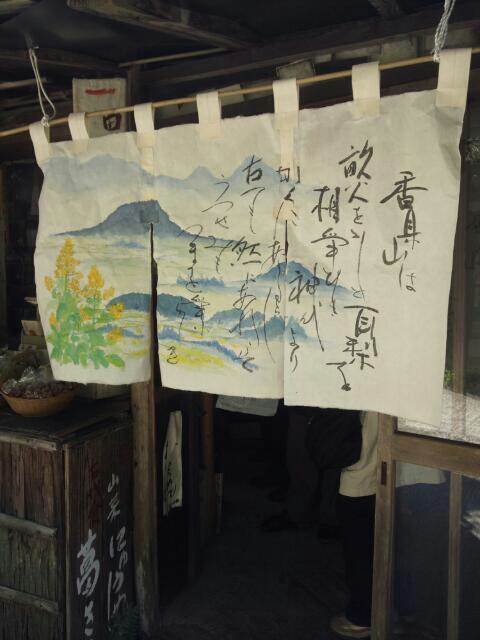 香具山は
畝火ををしと 耳梨と
相争ひき 神代より
かくに有るらし
古も 然にあれこそ
うつせみも
つまを争ふ
山菜
葛き